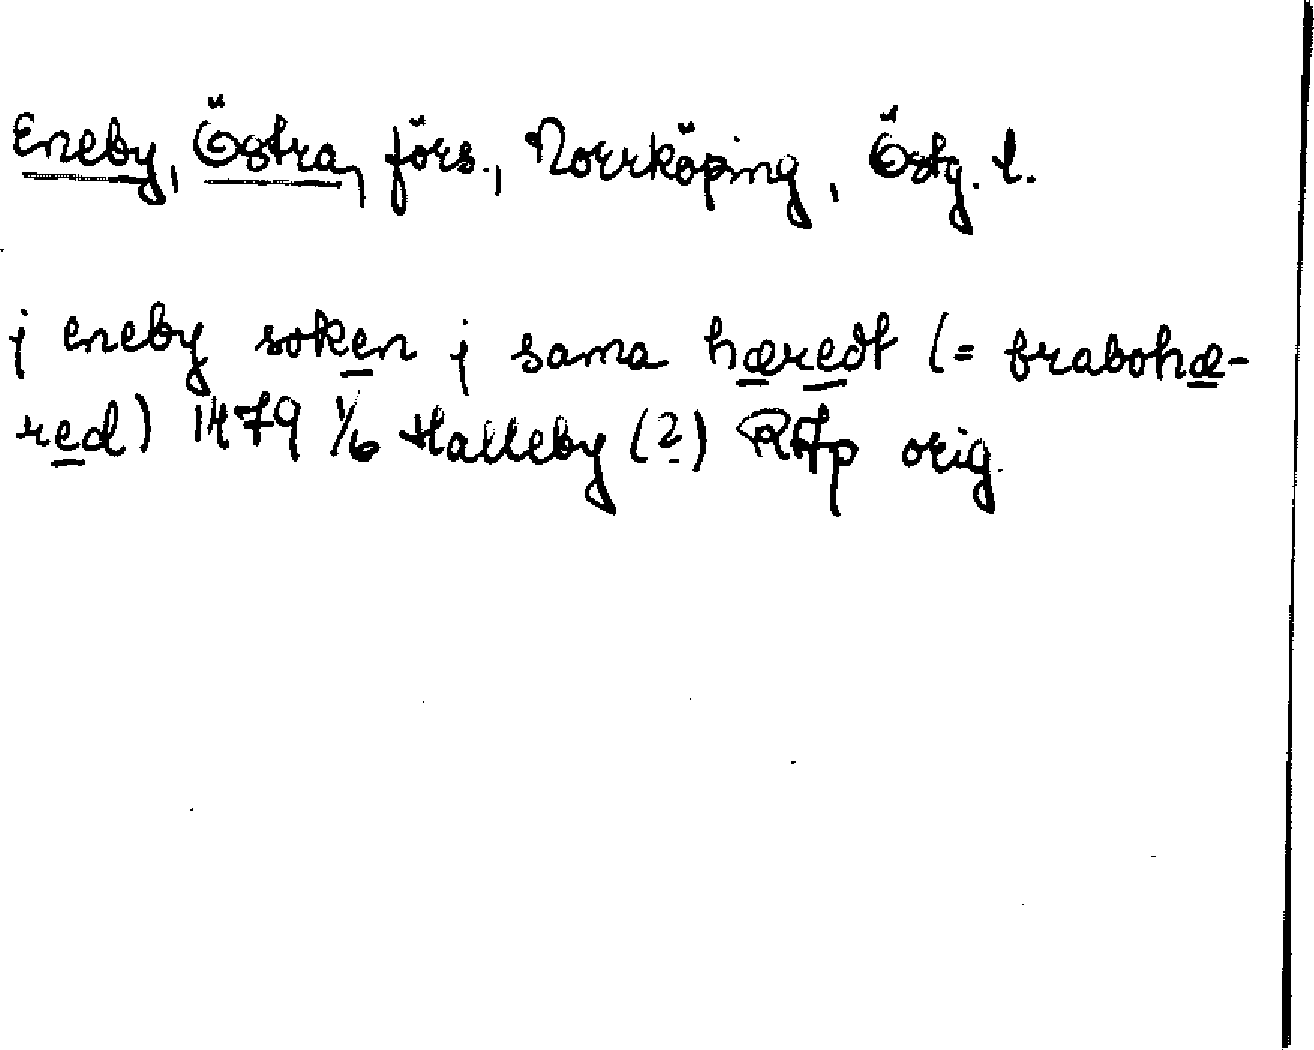 Eneby, Östra, förs., Norrköping, Östg. l.
j eneby soken j sama hæredt (= brabohæ-
red) 1479 1/6 Halleby (?) RAp orig.